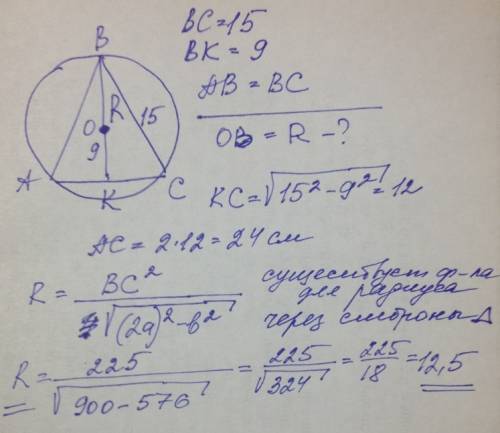 BC = 15
BK = 9
AB = BC
OB = R - ?
B
O R 15
9
A K C
KC = √15² - 9² = 12
AC = 2·12 = 24 см
R = BC² / √(2a)² - b²
существует ф-ла
для радиуса
через стороны Δ
R = 225 / √900 - 576 = 225 / √324 = 225 / 18 = 12,5